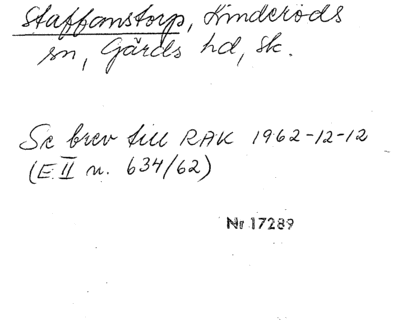 Staffanstorp, Linderöds
sn, Gärds hd, Sk.
Se brev till RAK 1962-12-12
(E II n. 634/62)
Nr 17289